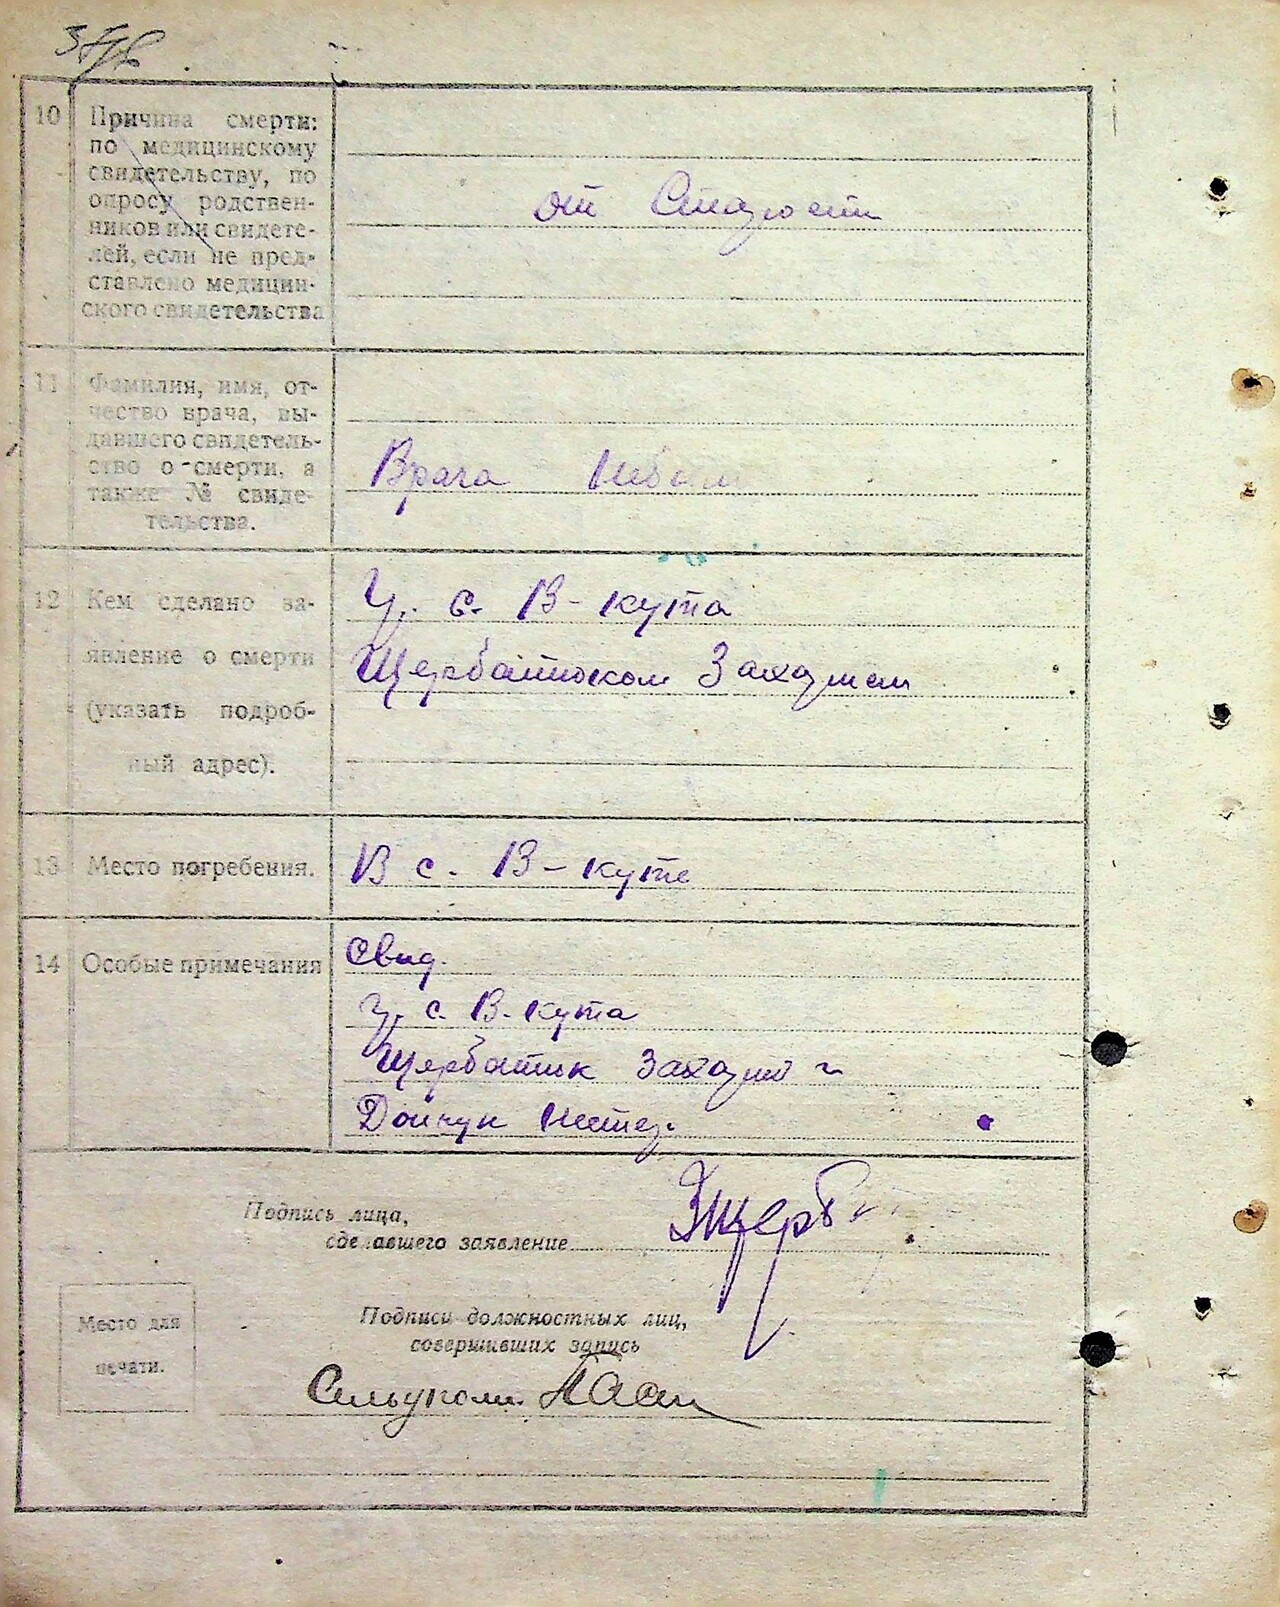 10 Причина смерти:
по медицинскому
свидетельству, по
опросу родствен-
ников или свидете-
лей, если не пред-
ставлено медицин-
ского свидетельства
от Старости
11 Фамилия, имя, от-
чество врача, вы-
давшего свидетель-
ство о смерти, а
также № свиде-
тельства.
Врача Небыло
12 Кем сделано за-
явление о смерти
(указать подроб-
ный адрес).
с. В-кута
Щербатюком Захарием
13 Место погребения.
В с. В-куте
14 Особые примечания
Свид.
с. В. кута
Щербатюк Захарий и
Дойчук
Подпись лица,
сделавшего заявление
ЗЩерб
Место для
печати.
Подписи должностных лиц,
совершивших запись